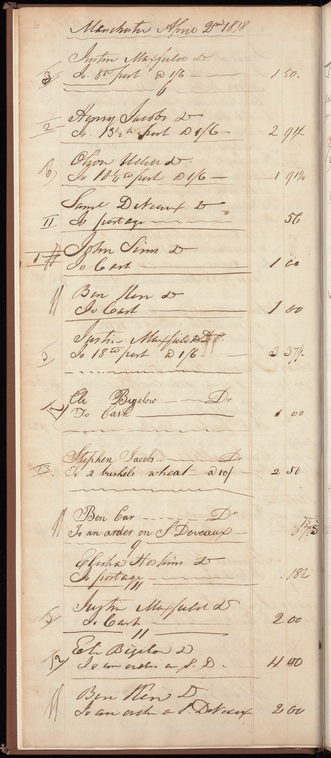 Manchester April 2nd 1818
Justin Maxfield Dr
To 8 lb port @ 1/6 1 50
6
2 Henry Jacobs Dr
To port @ 1/6 2 94
6
To port @ 1/6 1 91
Saml DeVeaux Dr
11 To portage 56
1 John Sims Dr
To Cash 1 00
11 Ben Ken Dr
To Cash 1 00
Justin Maxfield Dr
5 To 18 lb port @ 1/6 3 37½
Eli Bigelow Dr
12 To Cash 1 00
Stephen Jacobs Dr
13 To 2 bushels wheat @ 10/ 2 50
11 Ben Car Dr
To an order on S Deveaux 75
9
Elisha Hoskins Dr
To portage 18½
11
5 Justin Maxfield Dr
To Cash 2 00
11
12 Eli Bigelow Dr
To an order on S. D. 4 40
11 Ben Ken Dr
To an order on S. DeVeaux 2 00